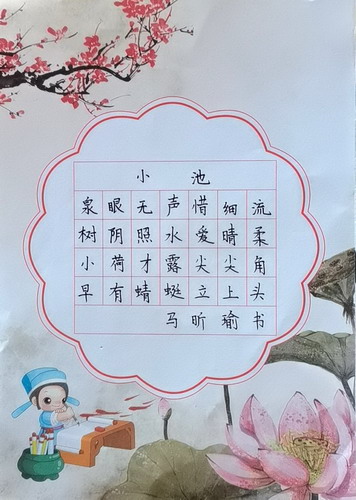 小池
泉眼无声惜细流
树阴照水爱晴柔
小荷才露尖尖角
早有蜻蜓立上头
马昕瑜书